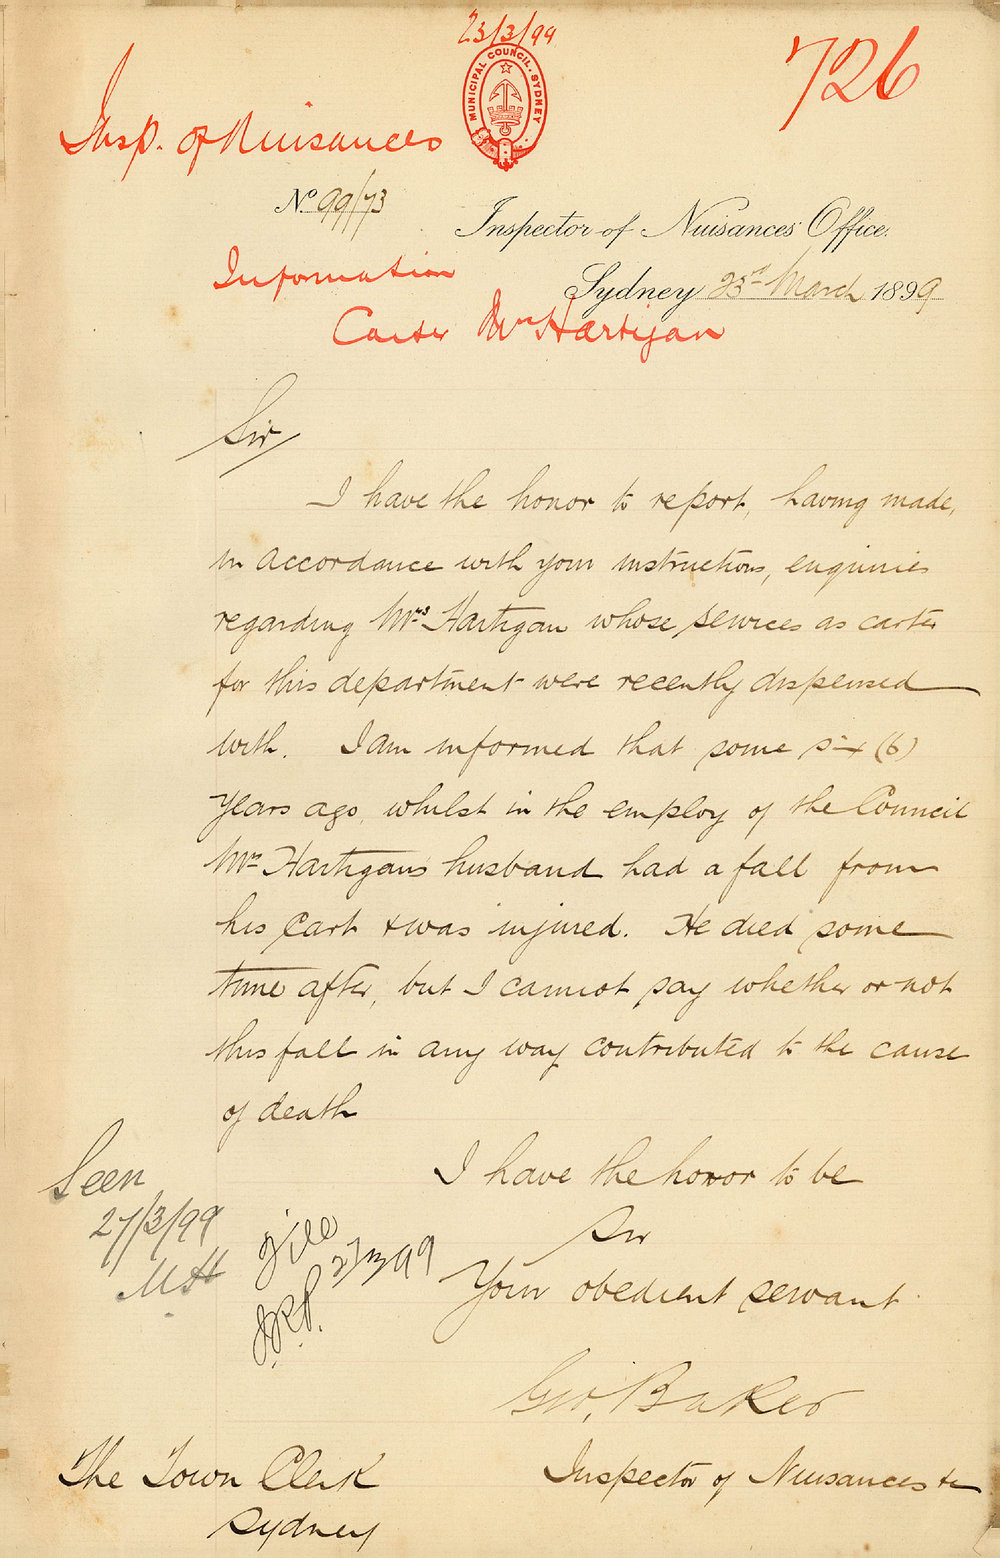 23/3/99
MUNICIPAL COUNCIL. SYDNEY
726
Insp. of Nuisances
No. 99/73
Inspector of Nuisances Office.
Information
Sydney 23rd March 1899
Carter Mrs Hartigan
Sir
I have the honor to report, having made,
in accordance with your instructions, enquiries
regarding Mrs Hartigan whose services as carter
for this department were recently dispensed
with. I am informed that some six (6)
years ago, whilst in the employ of the Council
Mrs Hartigan's husband had a fall from
his cart & was injured. He died some
time after, but I cannot say whether or not
this fall in any way contributed to the cause
of death
I have the honor to be
Sir
Your obedient servant
Geo. Baker
Inspector of Nuisances &c
Seen
27/3/99
MH
File
27/3/99
The Town Clerk
Sydney